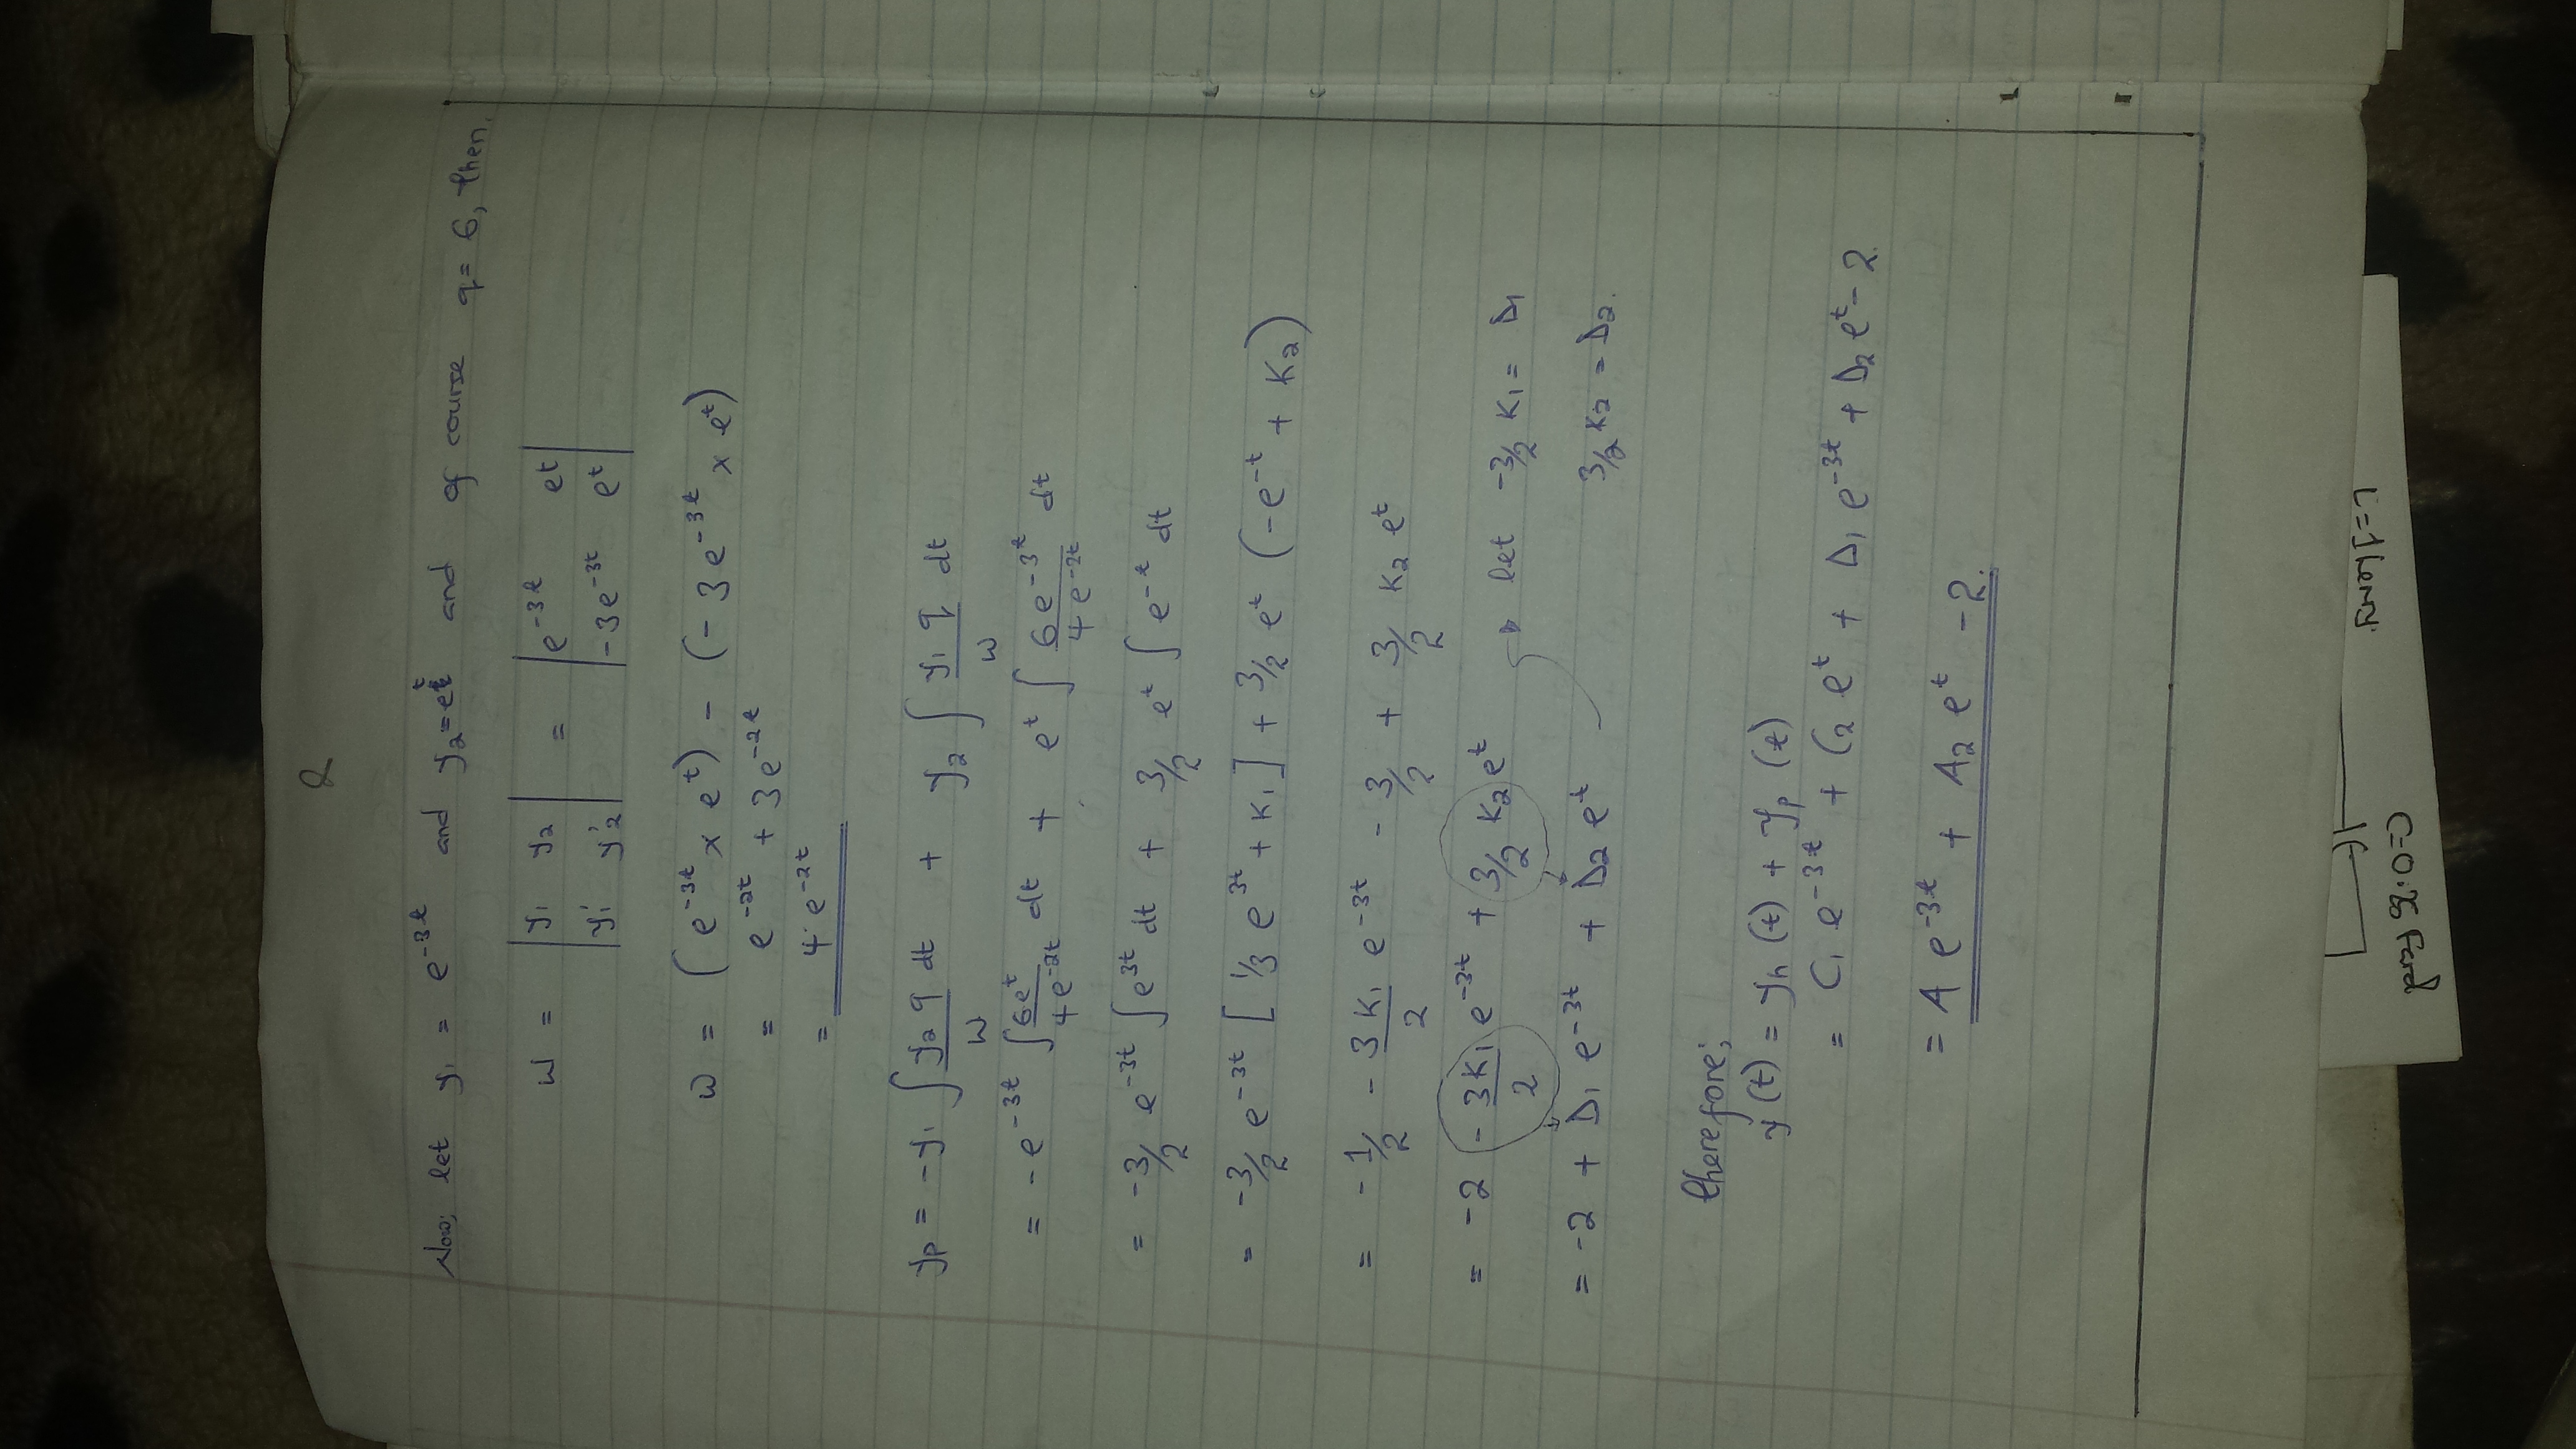 2
Now; let y₁ = e⁻³ᵗ and y₂ = eᵗ and of course q = 6, then,
W = | y₁ y₂ | = | e⁻³ᵗ eᵗ |
| y₁' y₂' | | -3e⁻³ᵗ eᵗ |
W = (e⁻³ᵗ x eᵗ) - (-3e⁻³ᵗ x eᵗ)
= e⁻²ᵗ + 3e⁻²ᵗ
= 4e⁻²ᵗ
yp = -y₁ ∫ y₂q/W dt + y₂ ∫ y₁q/W dt
= -e⁻³ᵗ ∫ 6eᵗ/4e⁻²ᵗ dt + eᵗ ∫ 6e⁻³ᵗ/4e⁻²ᵗ dt
= -3/2 e⁻³ᵗ ∫ e³ᵗ dt + 3/2 eᵗ ∫ e⁻ᵗ dt
= -3/2 e⁻³ᵗ [1/3 e³ᵗ + K₁] + 3/2 eᵗ (-e⁻ᵗ + K₂)
= -1/2 - 3K₁/2 e⁻³ᵗ - 3/2 + 3/2 K₂ eᵗ
= -2 - 3K₁/2 e⁻³ᵗ + 3/2 K₂ eᵗ let -3/2 K₁ = D₁
= -2 + D₁ e⁻³ᵗ + D₂ eᵗ 3/2 K₂ = D₂.
therefore;
y(t) = yh(t) + yp(t)
= C₁ e⁻³ᵗ + C₂ eᵗ + D₁ e⁻³ᵗ + D₂ eᵗ - 2
= A e⁻³ᵗ + A₂ eᵗ - 2.